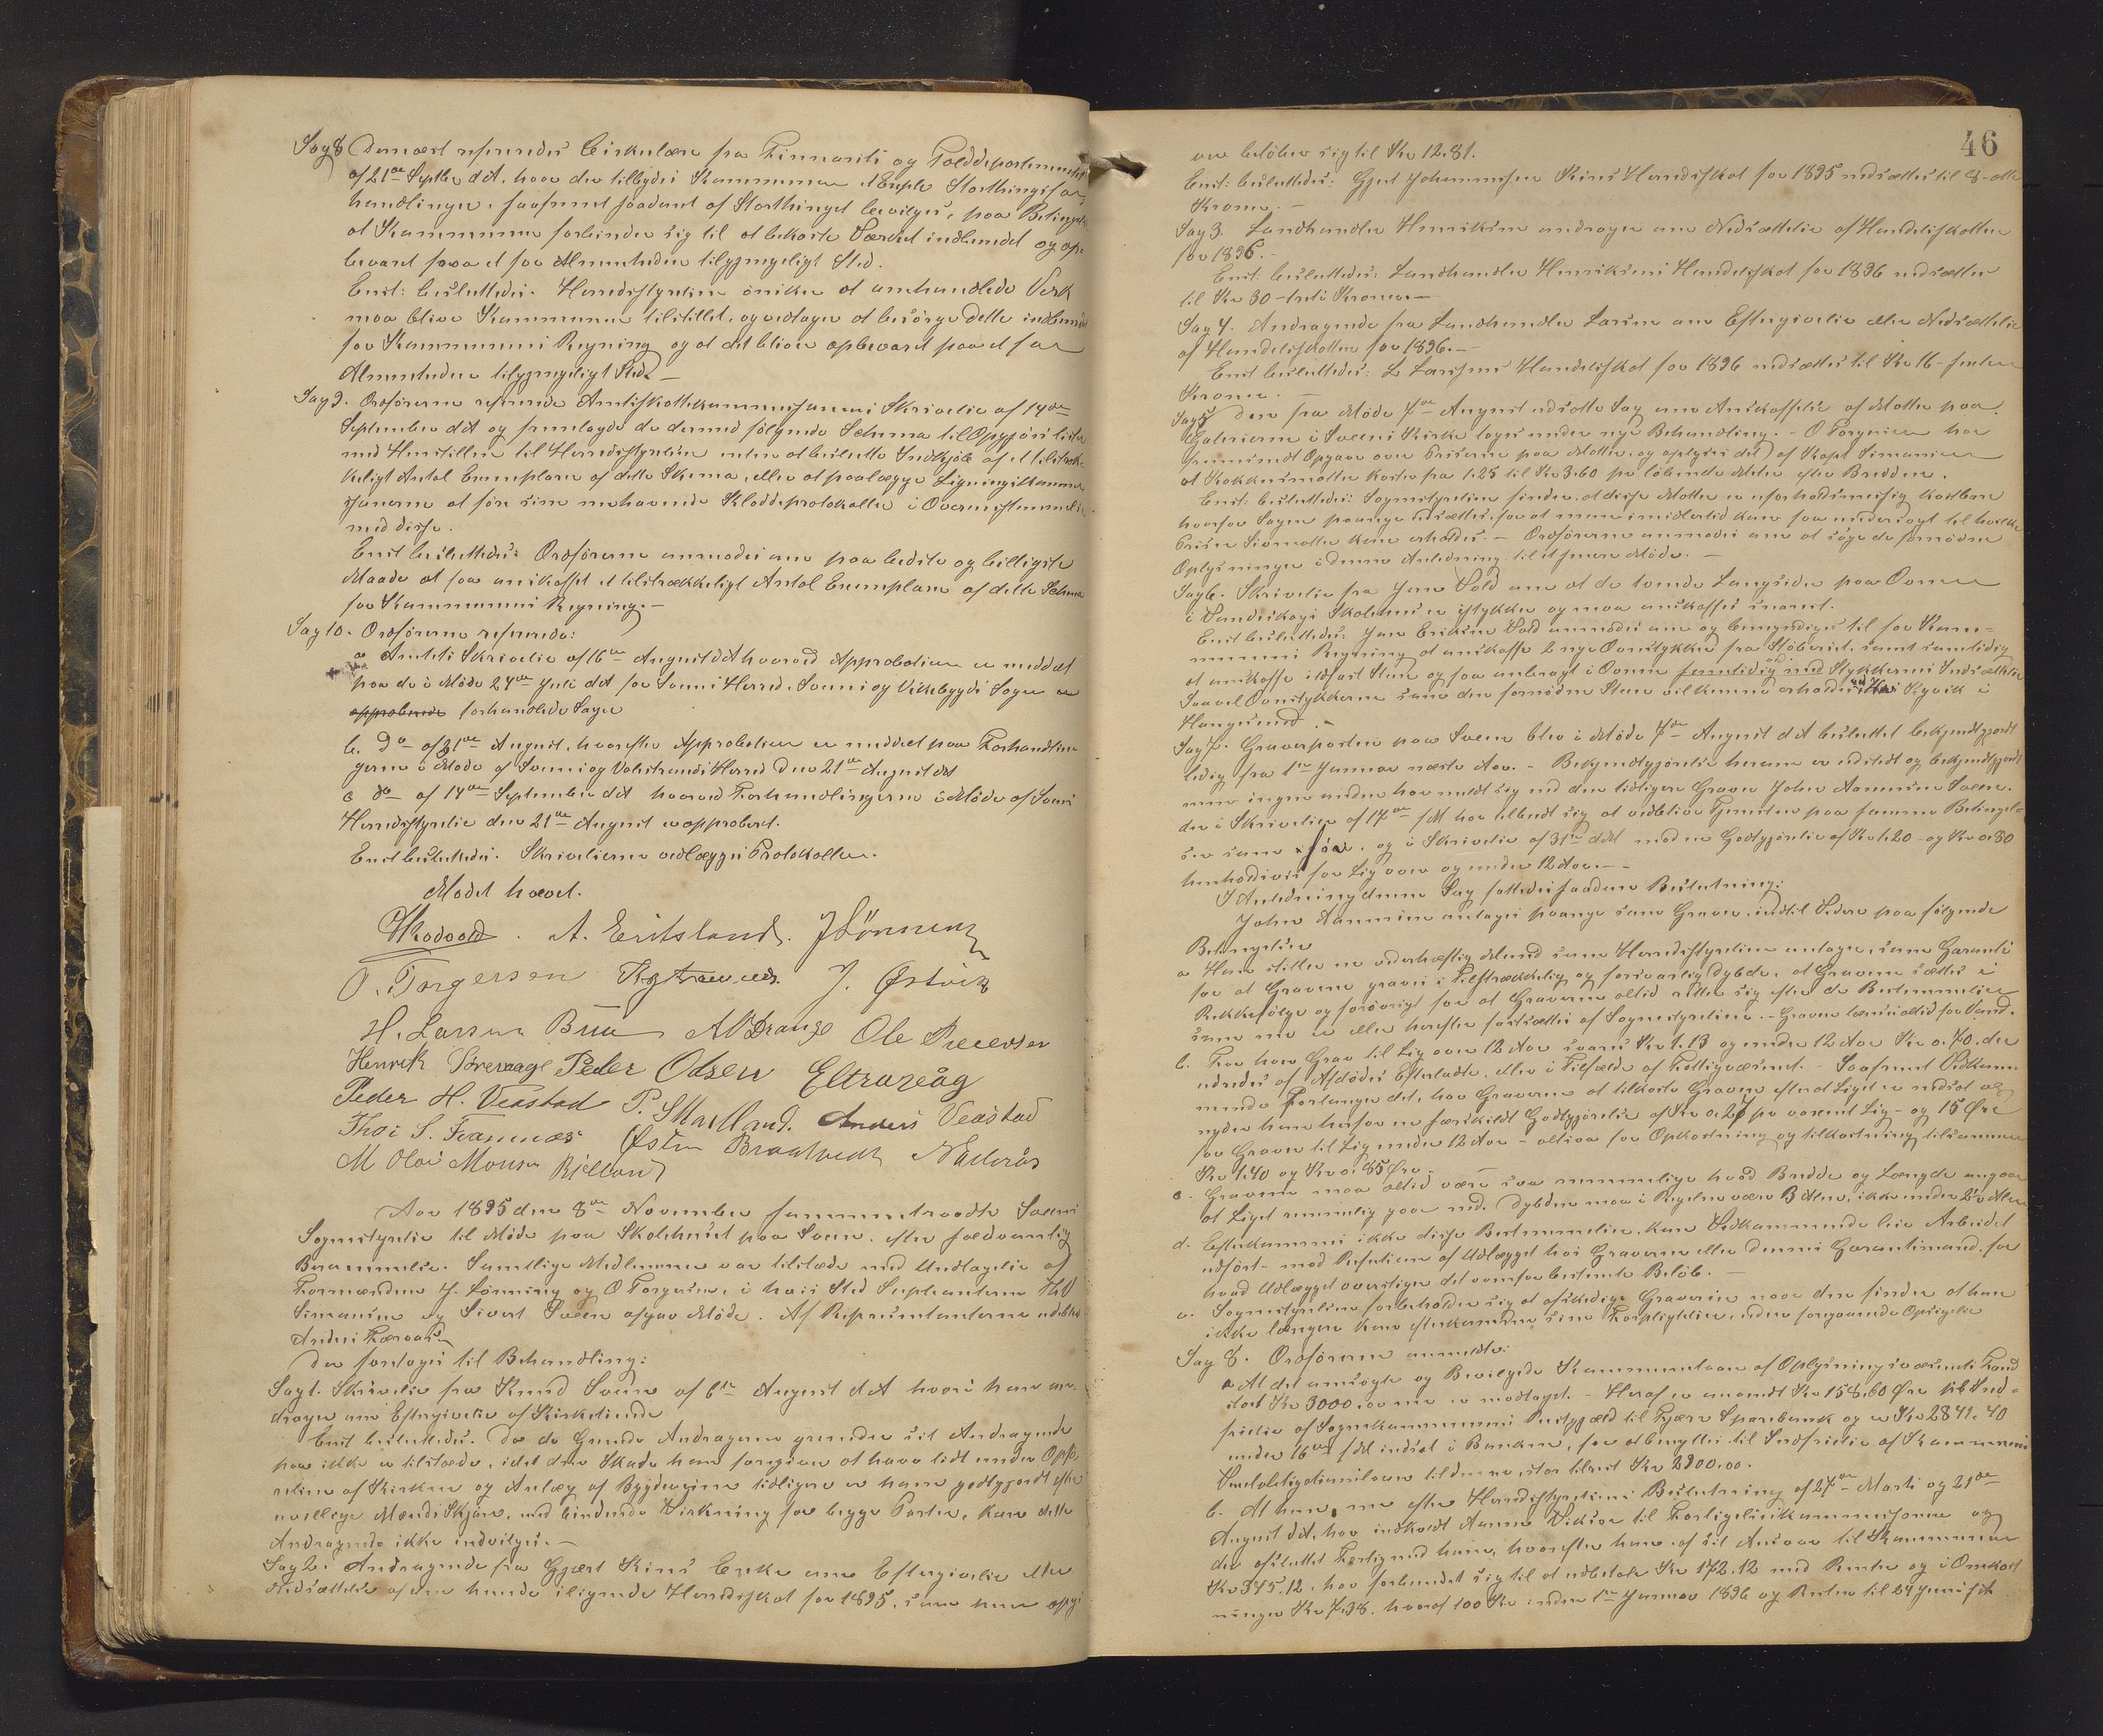 Sag 8 Dernæst refereredes Cirkulære fra Finants og Tolddepartementet
af 21de Septbr d.A. hvor der tilbydes Kommunen 1 Expl. Storthingsfor-
handlinger, saafremt saadant af Storthinget bevilges, paa Betingelse
at Kommunen forbinder sig til at bekoste Værket indbundet og op-
bevaret paa et for Almenheden tilgjængeligt Sted.
Enst: besluttedes. Herredsstyrelsen ønsker at omhandlede Verk
maa blive Kommunen tilstillet, og vedtager at besørge dette indbundet
for Kommunens Regning og at det bliver opbevaret paa et for
Almenheden tilgjængeligt Sted. —
Sag 9. Ordføreren refererede Amtsskattekommissionens Skrivelse af 14de
September d.A. og fremlagde de dermed følgende Schema til Opgjørslister
med Henstillen til Herredsstyrelsen enten at beslutte Indkjøb af et tilstræk-
keligt Antal Exemplarer af dette Skema, eller at paalægge Ligningskommis-
sionerne at føre sine nuhavende Kladdeprotokoller i Overensstemmelse
med disse.
Enst besluttedes: Ordføreren anmodes om paa bedste og billigste
Maade at faa anskaffet et tilstrækkeligt Antal Exemplarer af dette Schema
for Kommunens Regning. —
Sag 10. Ordføreren refererede:
a. Amtets Skrivelse af 16de August d.A. hvorved Approbation er meddelt
paa de i Møde 24de Juli d.A. for Sveens Herred, Sveens og Vikebygds Sogne
approberede forhandlede Sager
b. Do af 31te August, hvorefter Approbation er meddelt paa Forhandlin-
gerne i Møde af Sveens og Valestrands Herred den 21de August d.A.
c do af 14de September d.A. hvorved Forhandlingerne i Møde af Sveens
Herredsstyrelse den 21de August er approberet.
Enst besluttedes. Skrivelserne vedlægges Protokollen.
Mødet hævet.
A. Eritsland. J Lønning
O. Torgersen J. Østvik
H. Larsen Bua A B Drange Ole
Henrik Peder Olsen
Peder H. Veastad P. Anders Veastad
Thor S. Østen
M Olai Monsen Bjelland
Aar 1895 den 8de November sammentraadte Sveens
Sognestyrelse til Møde paa Skolehuset paa Sveen, efter sædvanlig
Berammelse. Samtlige Medlemmer var tilstede med Undtagelse af
Formændene J. Lønning og O Torgersen, i hvis Sted Suplanterne
Simonsen og Sivert Sveen afgav Møde. Af Repræsentanterne udeblev
Anders
Der foretoges til Behandling:
Sag 1. Skrivelse fra Knud Sveen af 6te August d.A. hvori han an-
drager om Eftergivelse af Kirketiende
Enst besluttedes. Da de Grunde Andrageren grunder sit Andragende
paa ikke er tilstede, idet den Skade han foregiver at have lidt under Opfø-
relsen af Kirken og Anlæg af Bygdeveien tidligere er ham godtgjordt efter
uvillige Mænds Skjøn, med bindende Virkning for begge Parter, kan dette
Andragende ikke indvilges. —
Sag 2. Andragende fra Gjert Enke om Eftergivelse eller
Nedsættelse af den hende ilignede Herredsskat for 1895, som hun opgi
46
ver beløber sig til Kr 12.81.
Enst: besluttedes: Gjert Johannessen Herredsskat for 1895 nedsættes til 8-otte
Kroner. —
Sag 3. Landhandler Henriksen androger om Nedsættelse af Handelsskatten
for 1896. —
Enst. besluttedes: Landhandler Henriksens Handelsskat for 1896 nedsættes
til Kr 30 - treti Kroner. —
Sag 4. Andragende fra Landhandler Larsen om Eftergivelse eller Nedsættelse
af Handelsskatten for 1896. —
Enst besluttedes: L Larsens Handelsskat for 1896 nedsættes til Kr 16 - sexten
Kroner. —
Sag 5 Den fra Møde 7de August udsatte Sag om Anskaffelse af Matter paa
Gallerierne i Sveens Kirke toges under ny Behandling. - O Torgersen har
fremsendt Opgave over Priserne paa Matter, og oplyses det af Kapt Simonsen
at Kokkusmatter koster fra 1.25 til Kr 3.60 pr løbende Meter efter Bredden.
Enst: besluttedes: Sognestyrelsen finder at disse Matter er uforholdsmæssig kostbare
hvorfor Sagen paanye udsættes, for at man imidlertid kan faa undersøgt til hvilken
Priser Sivmatter kan erholdes. - Ordføreren anmodes om at søge de fornødne
Oplysninger i denne Anledning til et senere Møde. —
Sag 6. Skrivelse fra Jens Vold om at de tvende Langsider paa Ovnen
i Skolehus er istykker og maa anskaffes snarest.
Enst besluttedes: Jens Eriksen Vold anmodes om og bemyndiges til for Kom-
munens Regning at anskaffe 2 nye Ovnstykker fra Støberiet, samt samtidig
at anskaffe ildfast Sten og faa anbragt i Ovnen samtidig med Stykkernes Indsættelse
Saavel Ovnstykkerne som den fornødne Sten vil kunne erholdes i
Haugesund. —
Sag 7. Graverposten paa Sveen blev i Møde 7de August d.A. besluttet bekjendtgjordt
ledig fra 1ste Januar næste Aar. - Bekjendtgjørelse herom er udstedt og bekjendtgjordt
men ingen anden har meldt sig end den tidligere Graver John Aamunsen Sveen.
der i Skrivelse af 17de f.M. har tilbudt sig at vedblive Tjenesten paa samme Betingel-
ser som før, og i Skrivelse af 31te d.M. mod en Godtgjørelse af Kr 1.20 - og Kr 0.80
henholdsvis for Lig over og under 12 Aar. —
I Anledning denne Sag fattedes saadan Beslutning:
John Aamunsen antages paanye som Graver indtil Videre paa følgende
Betingelser
a Han stiller en vederhæftig Mand som Herredsstyrelsen antager, som Garanti
for at Gravene graves i tilstrækkelig og forsvarlig Dybde, at Gravene sættes i
Rækkefølge og forøvrigt for at Graveren altid retter sig efter de Bestemmelser
som nu er eller herefter fastsættes af Sognestyrelsen. - Graven lænses altid for Vand.
b. For hver Grav til Lig over 12 Aar svares Kr 1.13 og under 12 Aar Kr 0.70, der
udredes af Afdødes Efterladte, eller i Tilfælde af Fattigvæsenet. - Saafremt Vedkom-
mende forlanger det, har Graveren at tilkaste Graven efterat Liget er nedsat og
nyder han herfor en særskildt Godtgjørelse af Kr 0.27 pr voxent Lig - og 15 Øre
for Graven til Lig under 12 Aar - altsaa for Opkastning og tilkastning tilsammen
Kr 1.40 og Kr 0.85 Øre. —
c. Gravene maa altid være saa rummelige hvad Bredde og Længde angaar
at Liget rummelig gaar ned. Dybden maa i Regelen være 3 Alen, ikke under 2½ Alen
d. Efterkommes ikke disse Bestemmelser, kan Vedkommende leie Arbeidet
udført - mod Refusion af Udlægget hos Graveren eller dennes Garantimand, for
hvad Udlægget overstiger det ovenfor bestemte Beløb. —
e. Sognestyrelsen forbeholder sig at afskedige Graveren naar den finder at han
ikke længere kan efterkomme sine Forpligtelser, uden foregaaende Opsigelse
Sag 8. Ordføreren anmeldte:
a At det ansøgte og Bevilgede Kommunelaan af Oplysningsvæsenets Fond
stort Kr 3000.00 nu er modtaget. - Heraf er anvendt Kr 158.60 Øre til Ind-
frielse af Sognekommunens Restgjæld til Fjære Sparebank og er Kr 2841.40
under 16de f.M. indsat i Banken, for at benyttes til Indfrielse af Kommunens
Vexelobligationslaan til denne, stor tilrest Kr 2900.00.
b. At han, nu efter Herredsstyrelsens Beslutning af 27de Marts og 21de
August d.A. har indkaldt Aamund Viksøe til Forligelseskommissionen og
der afsluttet Forlig med ham, hvorefter han af sit Ansvar til Kommunen
Kr 345.12, har forbundet sig til at udbetale Kr 172.12 med Renter og i Omkost-
ninger Kr 7.38, hvoraf 100 Kr inden 1ste Januar 1896 og Resten til 24 Juni s.A.